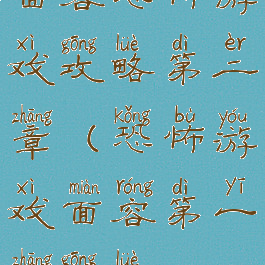 xì gōng lüè dì èr
戏攻略第二
zhāng kǒng bù yóu
章(恐怖游
xì miàn róng dì yī
戏面容第一
zhāng gōng lüè